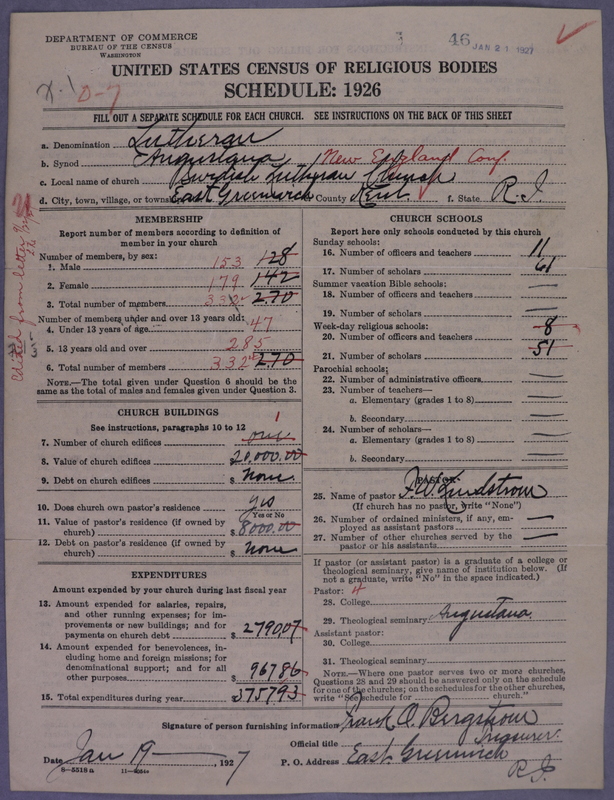 DEPARTMENT OF COMMERCE
BUREAU OF THE CENSUS
WASHINGTON
46 JAN 21 1927
X-1 D-7
UNITED STATES CENSUS OF RELIGIOUS BODIES
SCHEDULE: 1926
FILL OUT A SEPARATE SCHEDULE FOR EACH CHURCH. SEE INSTRUCTIONS ON THE BACK OF THIS SHEET
a. Denomination Lutheran
b. Synod Augustana / New England Conf.
c. Local name of church Swedish Lutheran Church
d. City, town, village, or township East Greenwich County Kent f. State R.I.
MEMBERSHIP
Report number of members according to definition of
member in your church
Number of members, by sex:
1. Male 153 128
2. Female 179 142
3. Total number of members 332 270
Number of members under and over 13 years old:
4. Under 13 years of age 47
5. 13 years old and over 285
6. Total number of members 332 270
NOTE.—The total given under Question 6 should be
the same as total of males and females given under Question 3.
CHURCH BUILDINGS
See instructions, paragraphs 10 to 12
1
7. Number of church edifices one
8. Value of church edifices $20,000.00
9. Debt on church edifices $ None
10. Does church own pastor's residence yes
Yes or No
11. Value of pastor's residence (if owned by
church) $8000.00
12. Debt on pastor's residence (if owned by
church) $ None
EXPENDITURES
Amount expended by your church during last fiscal year
13. Amount expended for salaries, repairs,
and other running expenses; for im-
provements or new buildings; and for
payments on church debt $ 279007
14. Amount expended for benevolences, in-
cluding home and foreign missions; for
denominational support; and for all
other purposes $ 96786
15. Total expenditures during year $ 375793
CHURCH SCHOOLS
Report here only schools conducted by this church
Sunday schools:
16. Number of officers and teachers 11
17. Number of scholars 61
Summer vacation Bible schools:
18. Number of officers and teachers —
19. Number of scholars —
Week-day religious schools:
20. Number of officers and teachers 8
21. Number of scholars 51
Parochial schools:
22. Number of administrative officers —
23. Number of teachers—
a. Elementary (grades 1 to 8) —
b. Secondary —
24. Number of scholars—
a. Elementary (grades 1 to 8) —
b. Secondary —
PASTOR
25. Name of pastor F.W. Lindstrom
(If church has no pastor, write "None")
26. Number of ordained ministers, if any, em-
ployed as assistant pastors —
27. Number of other churches served by the
pastor or his assistants —
If pastor (or assistant pastor) is a graduate of a college or
theological seminary, give name of institution below. (If
not a graduate, write "No" in the space indicated.)
Pastor: 4
28. College
29. Theological seminary Augustana
Assistant pastor:
30. College
31. Theological seminary
NOTE.—Where one pastor serves two or more churches,
Questions 28 and 29 should be answered only on the schedule
for one of the churches; on the schedules for the other churches,
write "See schedule for church."
Signature of person furnishing information Frank O. Bergstrom
Official title Treasurer
Date Jan 19 , 1927 P. O. Address East Greenwich
R.I.